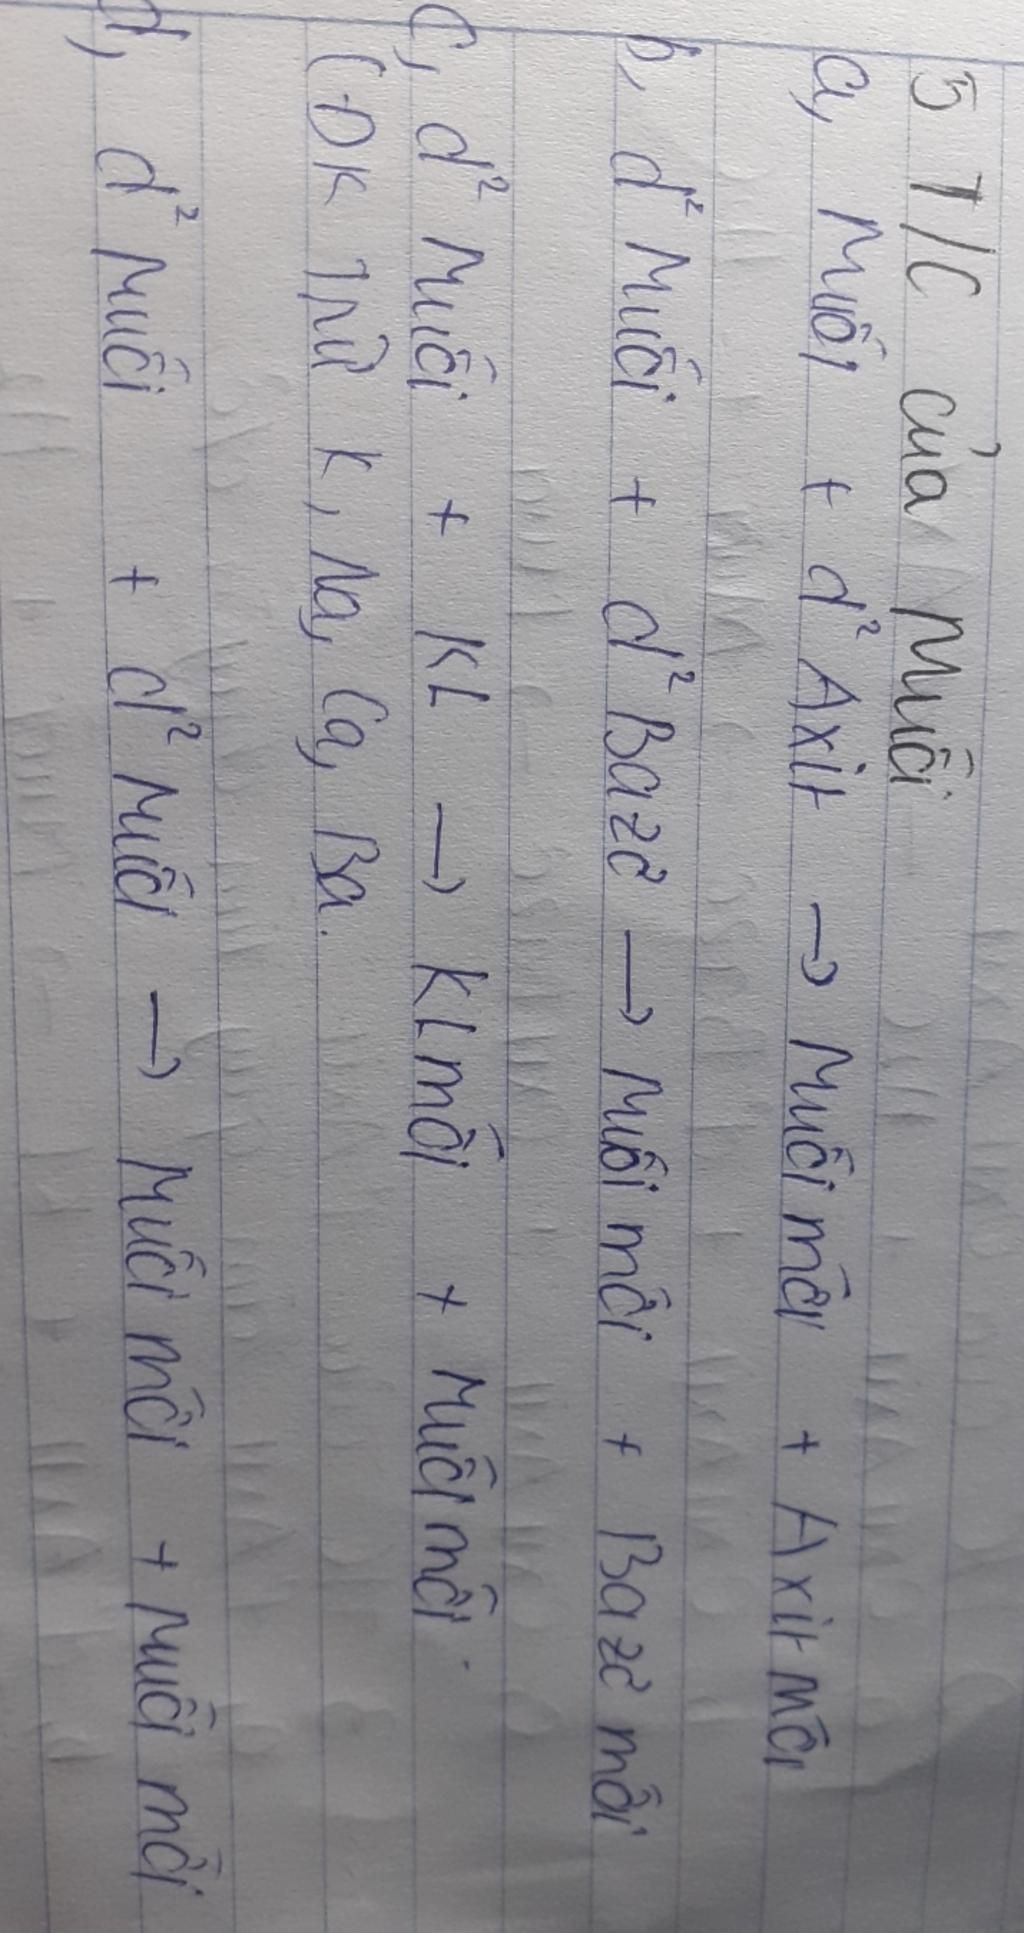 5 T/C của Muối
a, Muối + d² Axit → Muối mới + Axit mới
b, d² Muối + d² Bazơ → Muối mới + Bazơ mới
c, d² Muối + KL → KL mới + Muối mới.
(ĐK Trừ K, Na, Ca, Ba.
d, d² Muối + d² Muối → Muối mới + Muối mới